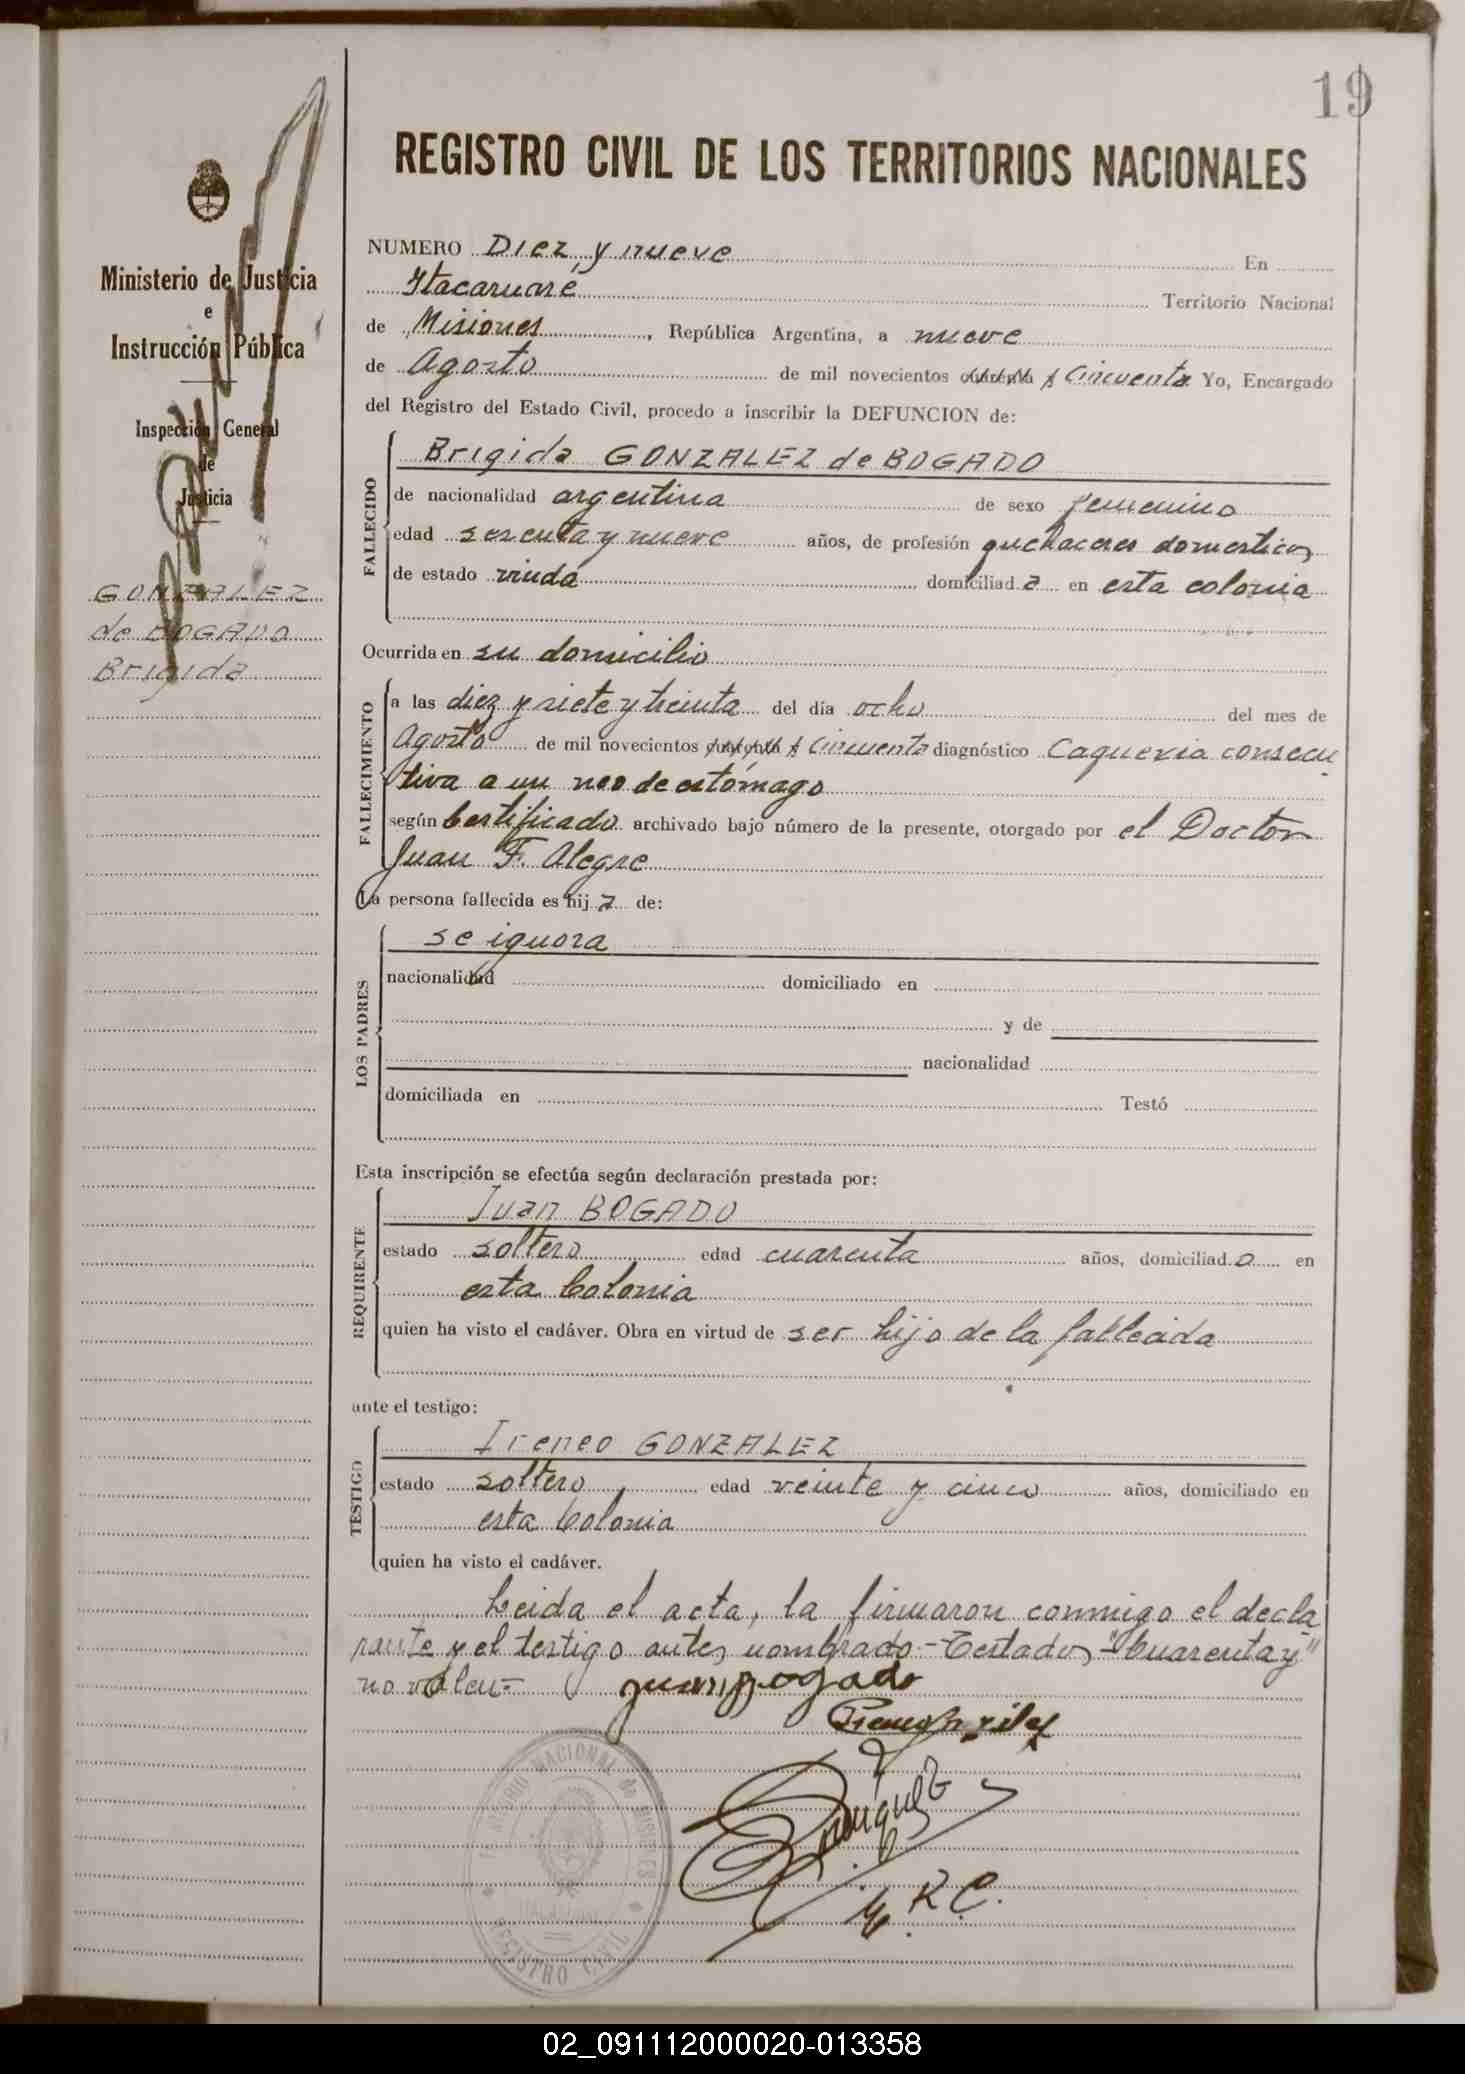 19
REGISTRO CIVIL DE LOS TERRITORIOS NACIONALES
Ministerio de Justicia
e
Instrucción Pública
Inspección General
de
Justicia
GONZALEZ
de BOGADO
Brigida
NUMERO Diez y nueve En
Itacaruaré Territorio Nacional
de Misiones, República Argentina, a nueve
de Agosto de mil novecientos cuarenta y Cincuenta Yo, Encargado
del Registro del Estado Civil, procedo a inscribir la DEFUNCION de:
FALLECIDO
Brigida GONZALEZ de BOGADO
de nacionalidad argentina de sexo femenino
edad sesenta y nueve años, de profesión quehaceres domesticos
de estado viuda domiciliad a en esta colonia
Ocurrida en su domicilio
FALLECIMIENTO
a las diez y siete y treinta del día ocho del mes de
Agosto de mil novecientos cuarenta y Cincuenta diagnóstico Caquexia consecu
tiva a un neo de estómago
según Certificado archivado bajo número de la presente, otorgado por el Doctor
Juan F. Alegre
La persona fallecida es hij a de:
LOS PADRES
se ignora
nacionalidad domiciliado en
y de
nacionalidad
domiciliada en Testó
Esta inscripción se efectúa según declaración prestada por:
REQUIRENTE
Juan BOGADO
estado soltero edad cuarenta años, domiciliad o en
esta Colonia
quien ha visto el cadáver. Obra en virtud de ser hijo de la fallecida
ante el testigo:
TESTIGO
Ireneo GONZALEZ
estado soltero edad veinte y cinco años, domiciliado en
esta Colonia
quien ha visto el cadáver.
Leida el acta, la firmaron conmigo el decla
rante y el testigo antes nombrado - Testados "Cuarenta y"
no valen -
juan bogado
E. R. C.
TERRITORIO NACIONAL de MISIONES
REGISTRO CIVIL
02_091112000020-013358